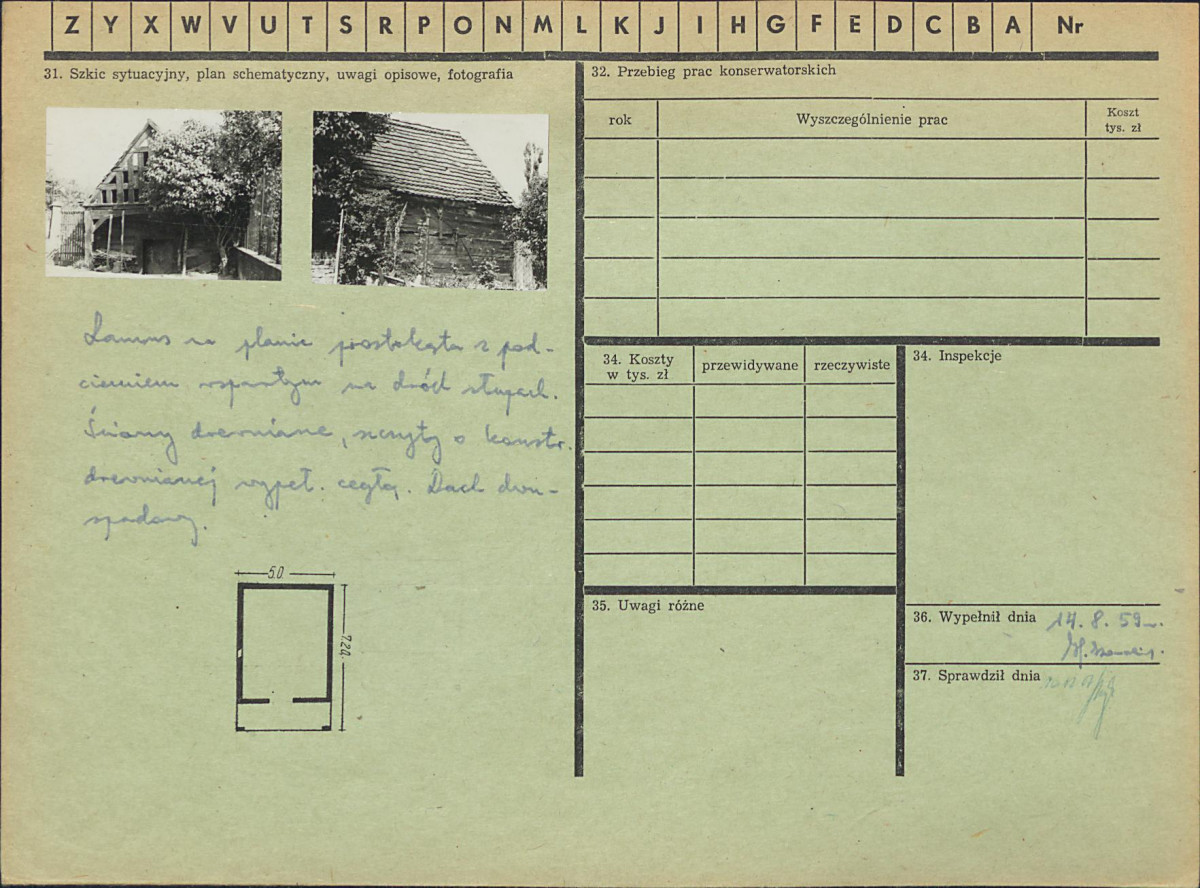 Z Y X W V U T S R P O N M L K J I H G F E D C B A Nr
31. Szkic sytuacyjny, plan schematyczny, uwagi opisowe, fotografia
Lamus na planie prostokąta z pod-
cieniem wspartym na dwóch słupach.
Ściany drewniane, szczyty o konstr.
drewnianej wypeł. cegłą. Dach dwu-
spadowy.
5.0
7.20
32. Przebieg prac konserwatorskich
rok
Wyszczególnienie prac
Koszt
tys. zł
34. Koszty
w tys. zł
przewidywane
rzeczywiste
34. Inspekcje
35. Uwagi różne
36. Wypełnił dnia 14. 8. 59 r.
37. Sprawdził dnia